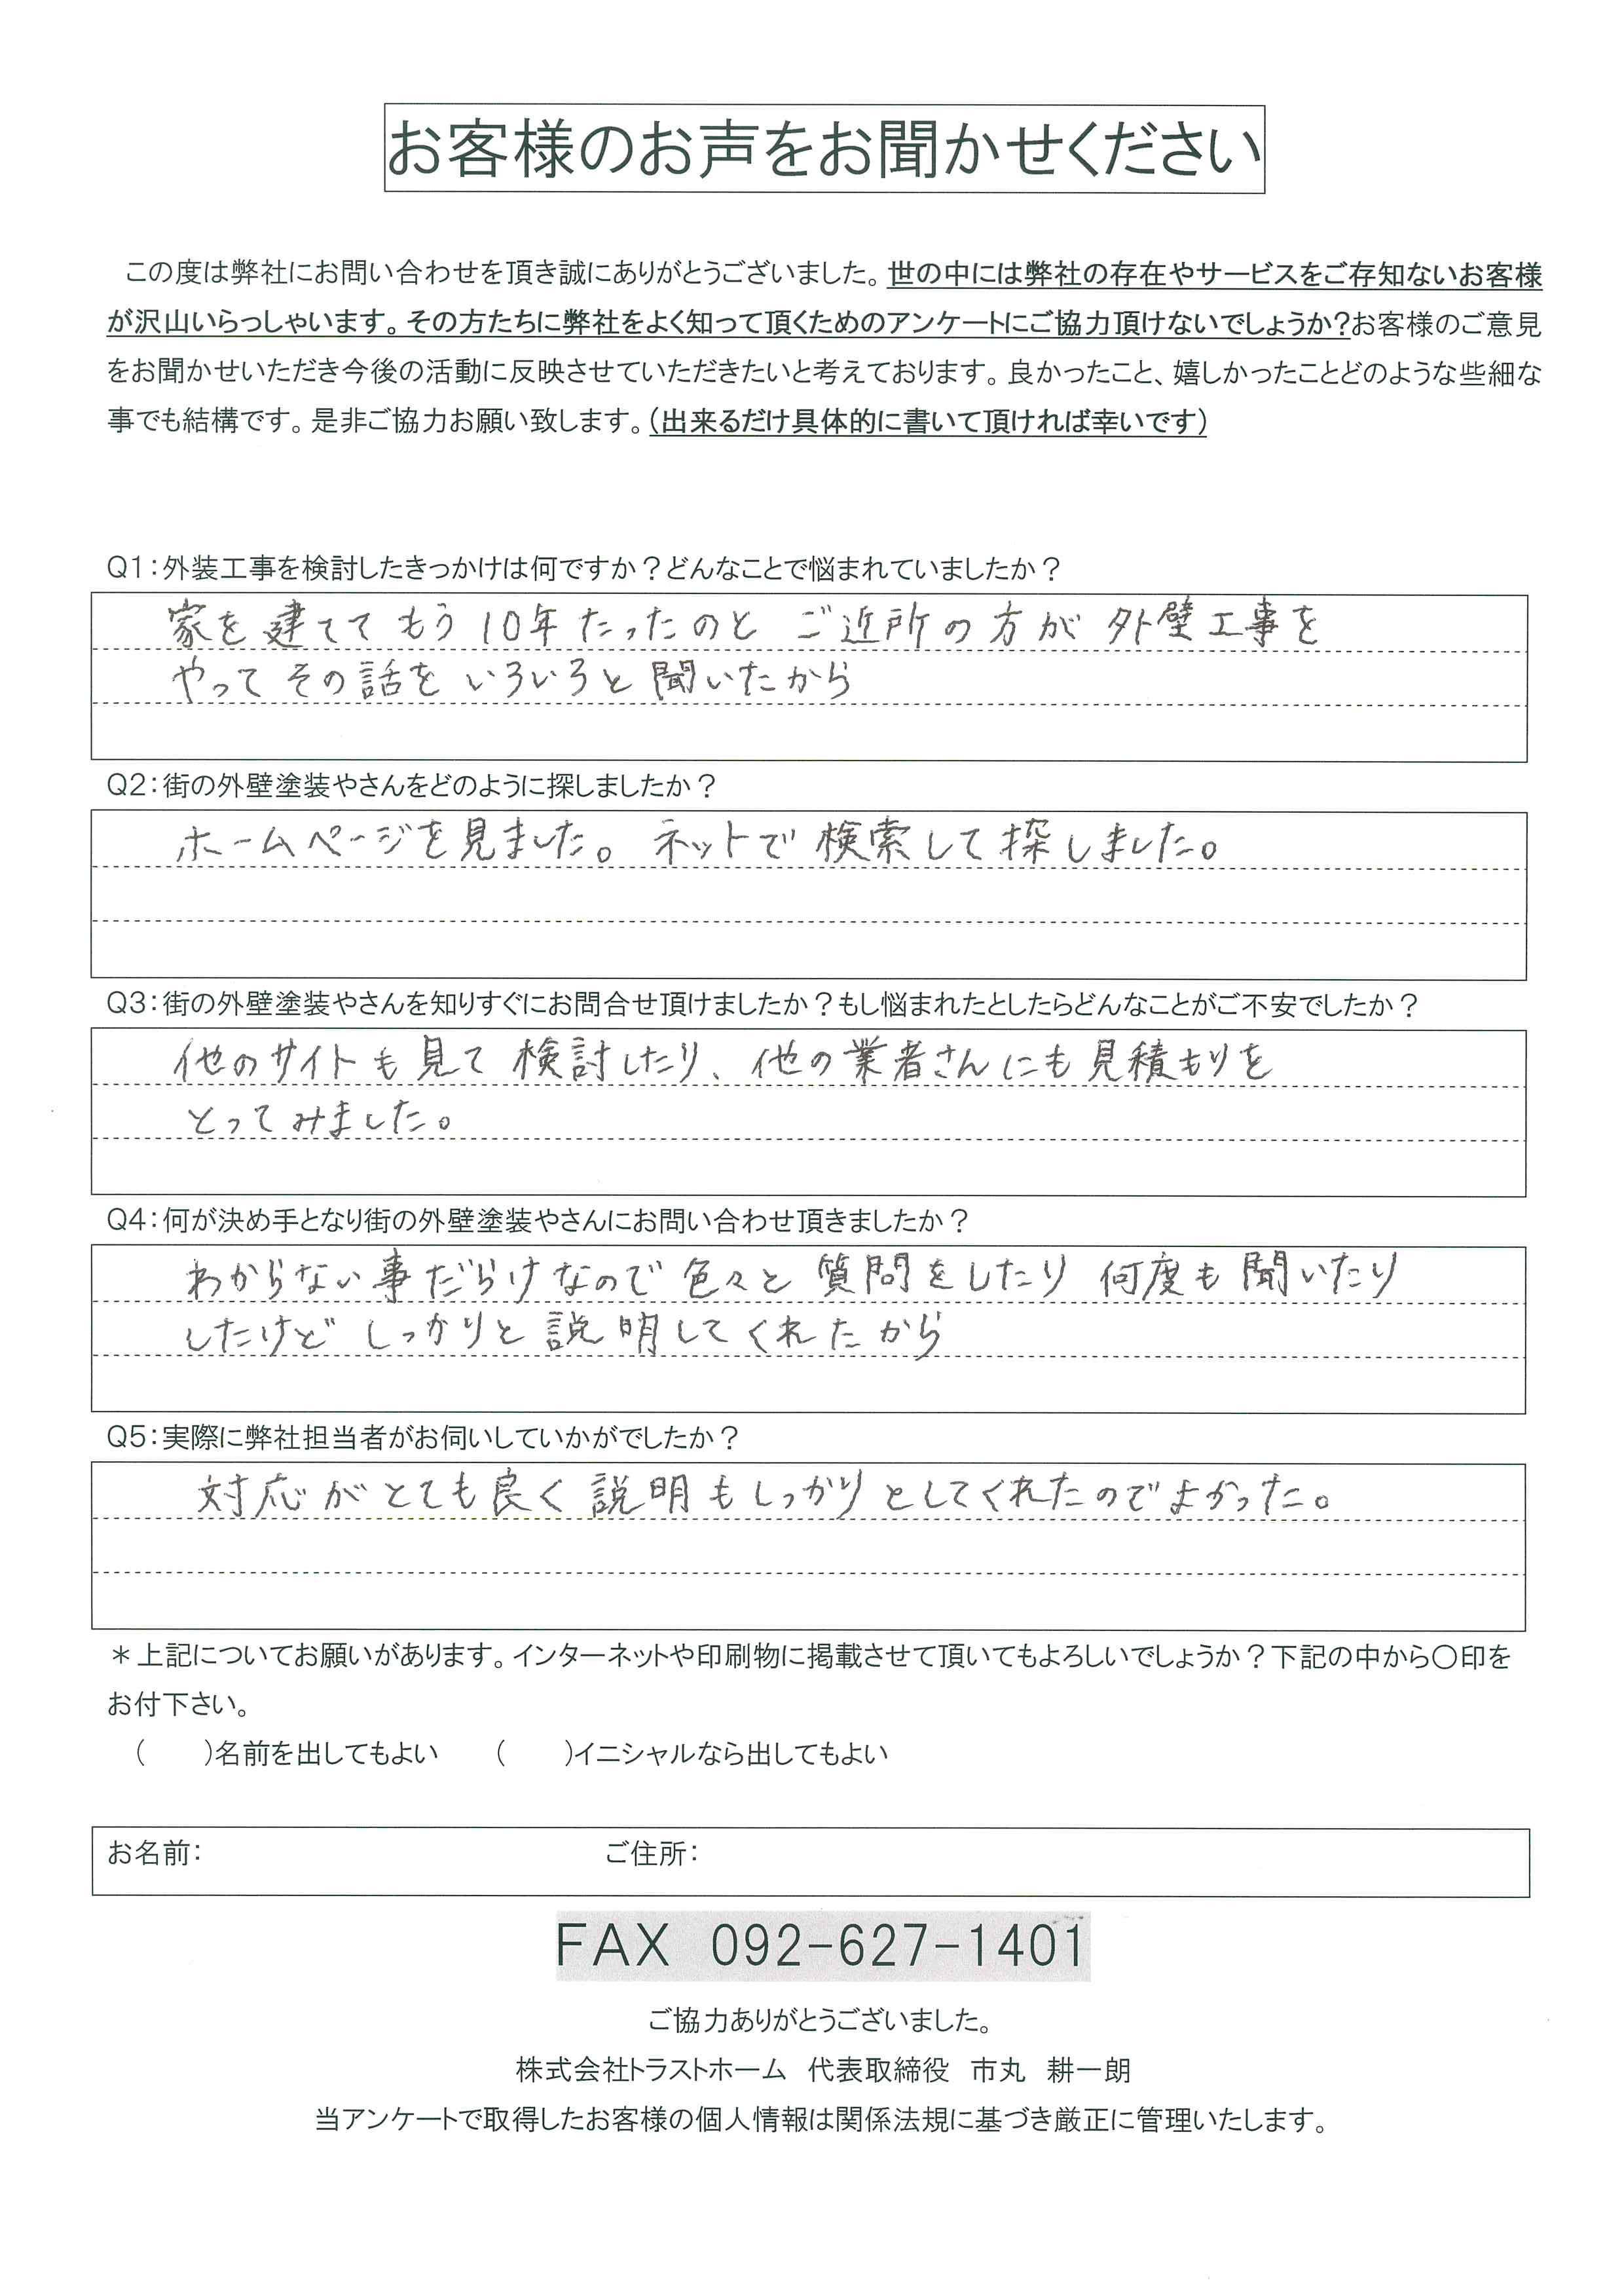 お客様のお声をお聞かせください
この度は弊社にお問い合わせを頂き誠にありがとうございました。世の中には弊社の存在やサービスをご存知ないお客様
が沢山いらっしゃいます。その方たちに弊社をよく知って頂くためのアンケートにご協力頂けないでしょうか?お客様のご意見
をお聞かせいただき今後の活動に反映させていただきたいと考えております。良かったこと、嬉しかったことどのような些細な
事でも結構です。是非ご協力お願い致します。(出来るだけ具体的に書いて頂ければ幸いです)
Q1:外装工事を検討したきっかけは何ですか?どんなことで悩まれていましたか?
家を建ててもう10年たったのと ご近所の方が外壁工事を
やってその話をいろいろと聞いたから
Q2:街の外壁塗装やさんをどのように探しましたか?
ホームページを見ました。ネットで検索して探しました。
Q3:街の外壁塗装やさんを知りすぐにお問合せ頂けましたか?もし悩まれたとしたらどんなことがご不安でしたか?
他のサイトも見て検討したり、他の業者さんにも見積もりを
とってみました。
Q4:何が決め手となり街の外壁塗装やさんにお問い合わせ頂きましたか?
わからない事だらけなので色々と質問をしたり何度も聞いたり
したけどしっかりと説明してくれたから
Q5:実際に弊社担当者がお伺いしていかがでしたか?
対応がとても良く説明もしっかりとしてくれたのでよかった。
*上記についてお願いがあります。インターネットや印刷物に掲載させて頂いてもよろしいでしょうか?下記の中から○印を
お付下さい。
(　　)名前を出してもよい　　(　　)イニシャルなら出してもよい
お名前:　　ご住所:
FAX 092-627-1401
ご協力ありがとうございました。
株式会社トラストホーム 代表取締役 市丸 耕一朗
当アンケートで取得したお客様の個人情報は関係法規に基づき厳正に管理いたします。